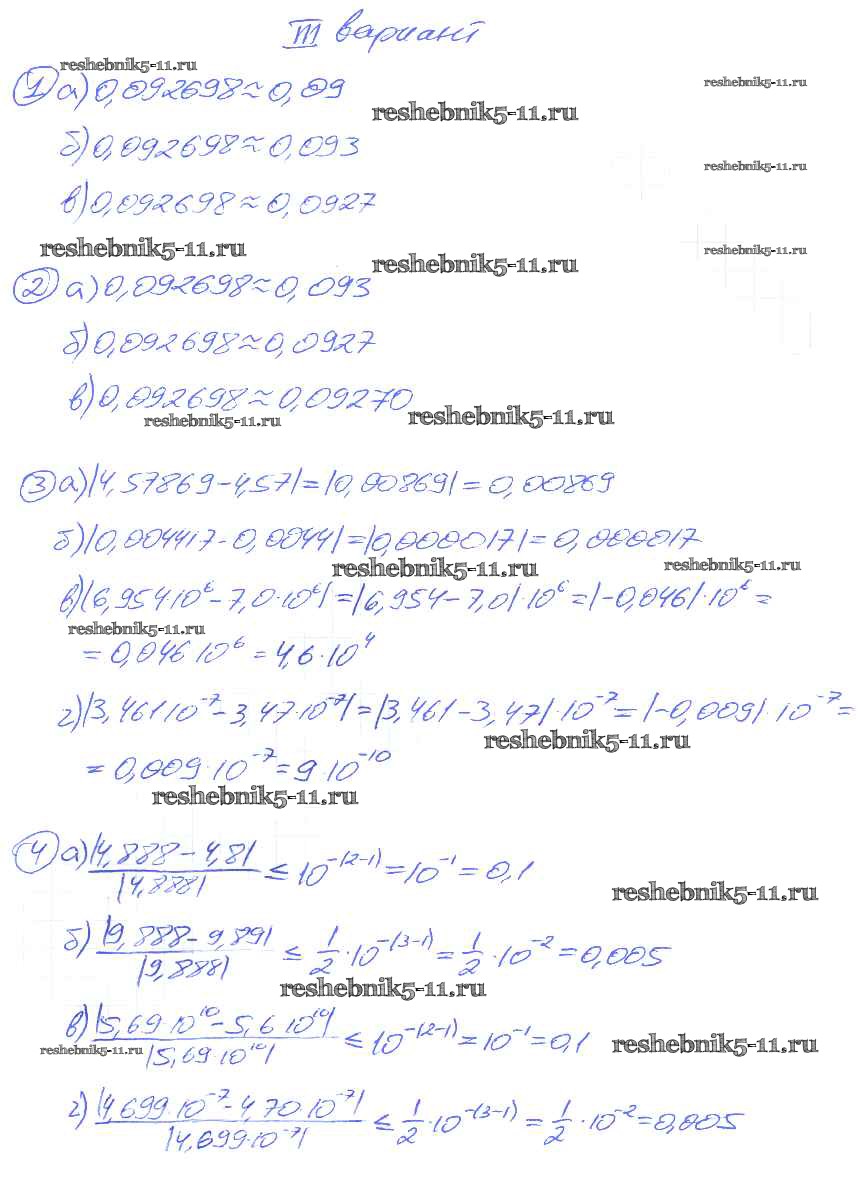 III вариант
reshebnik5-11.ru
① а) 0,092698 ≈ 0,09
reshebnik5-11.ru
reshebnik5-11.ru
б) 0,092698 ≈ 0,093
reshebnik5-11.ru
в) 0,092698 ≈ 0,0927
reshebnik5-11.ru
reshebnik5-11.ru
reshebnik5-11.ru
② а) 0,092698 ≈ 0,093
б) 0,092698 ≈ 0,0927
в) 0,092698 ≈ 0,09270
reshebnik5-11.ru
reshebnik5-11.ru
③ а) |4,57869 - 4,57| = |0,00869| = 0,00869
б) |0,004417 - 0,0044| = |0,000017| = 0,000017
reshebnik5-11.ru
reshebnik5-11.ru
в) |6,954·10⁶ - 7,0·10⁶| = |6,954 - 7,0|·10⁶ = |-0,046|·10⁶ =
reshebnik5-11.ru
= 0,046·10⁶ = 4,6·10⁴
г) |3,461·10⁻⁷ - 3,47·10⁻⁷| = |3,461 - 3,47|·10⁻⁷ = |-0,009|·10⁻⁷ =
reshebnik5-11.ru
= 0,009·10⁻⁷ = 9·10⁻¹⁰
reshebnik5-11.ru
④ а) |4,888 - 4,8| / |4,888| ≤ 10⁻⁽²⁻¹⁾ = 10⁻¹ = 0,1
reshebnik5-11.ru
б) |9,888 - 9,89| / |9,888| ≤ 1/2·10⁻⁽³⁻¹⁾ = 1/2·10⁻² = 0,005
reshebnik5-11.ru
в) |5,69·10¹⁰ - 5,6·10¹⁰| / |5,69·10¹⁰| ≤ 10⁻⁽²⁻¹⁾ = 10⁻¹ = 0,1
reshebnik5-11.ru
reshebnik5-11.ru
г) |4,699·10⁻⁷ - 4,70·10⁻⁷| / |4,699·10⁻⁷| ≤ 1/2·10⁻⁽³⁻¹⁾ = 1/2·10⁻² = 0,005